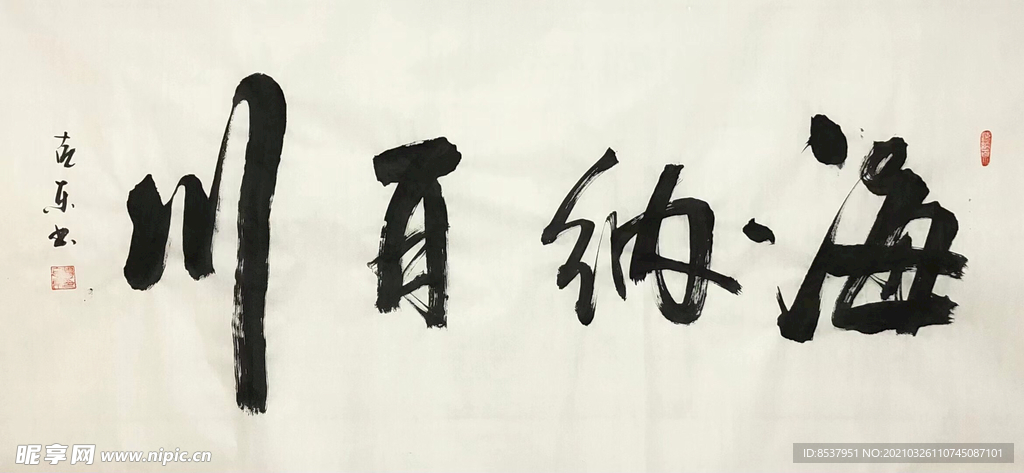 海纳百川
克东书
昵享网 www.nipic.cn
ID:8537951 NO:20210326110745087101